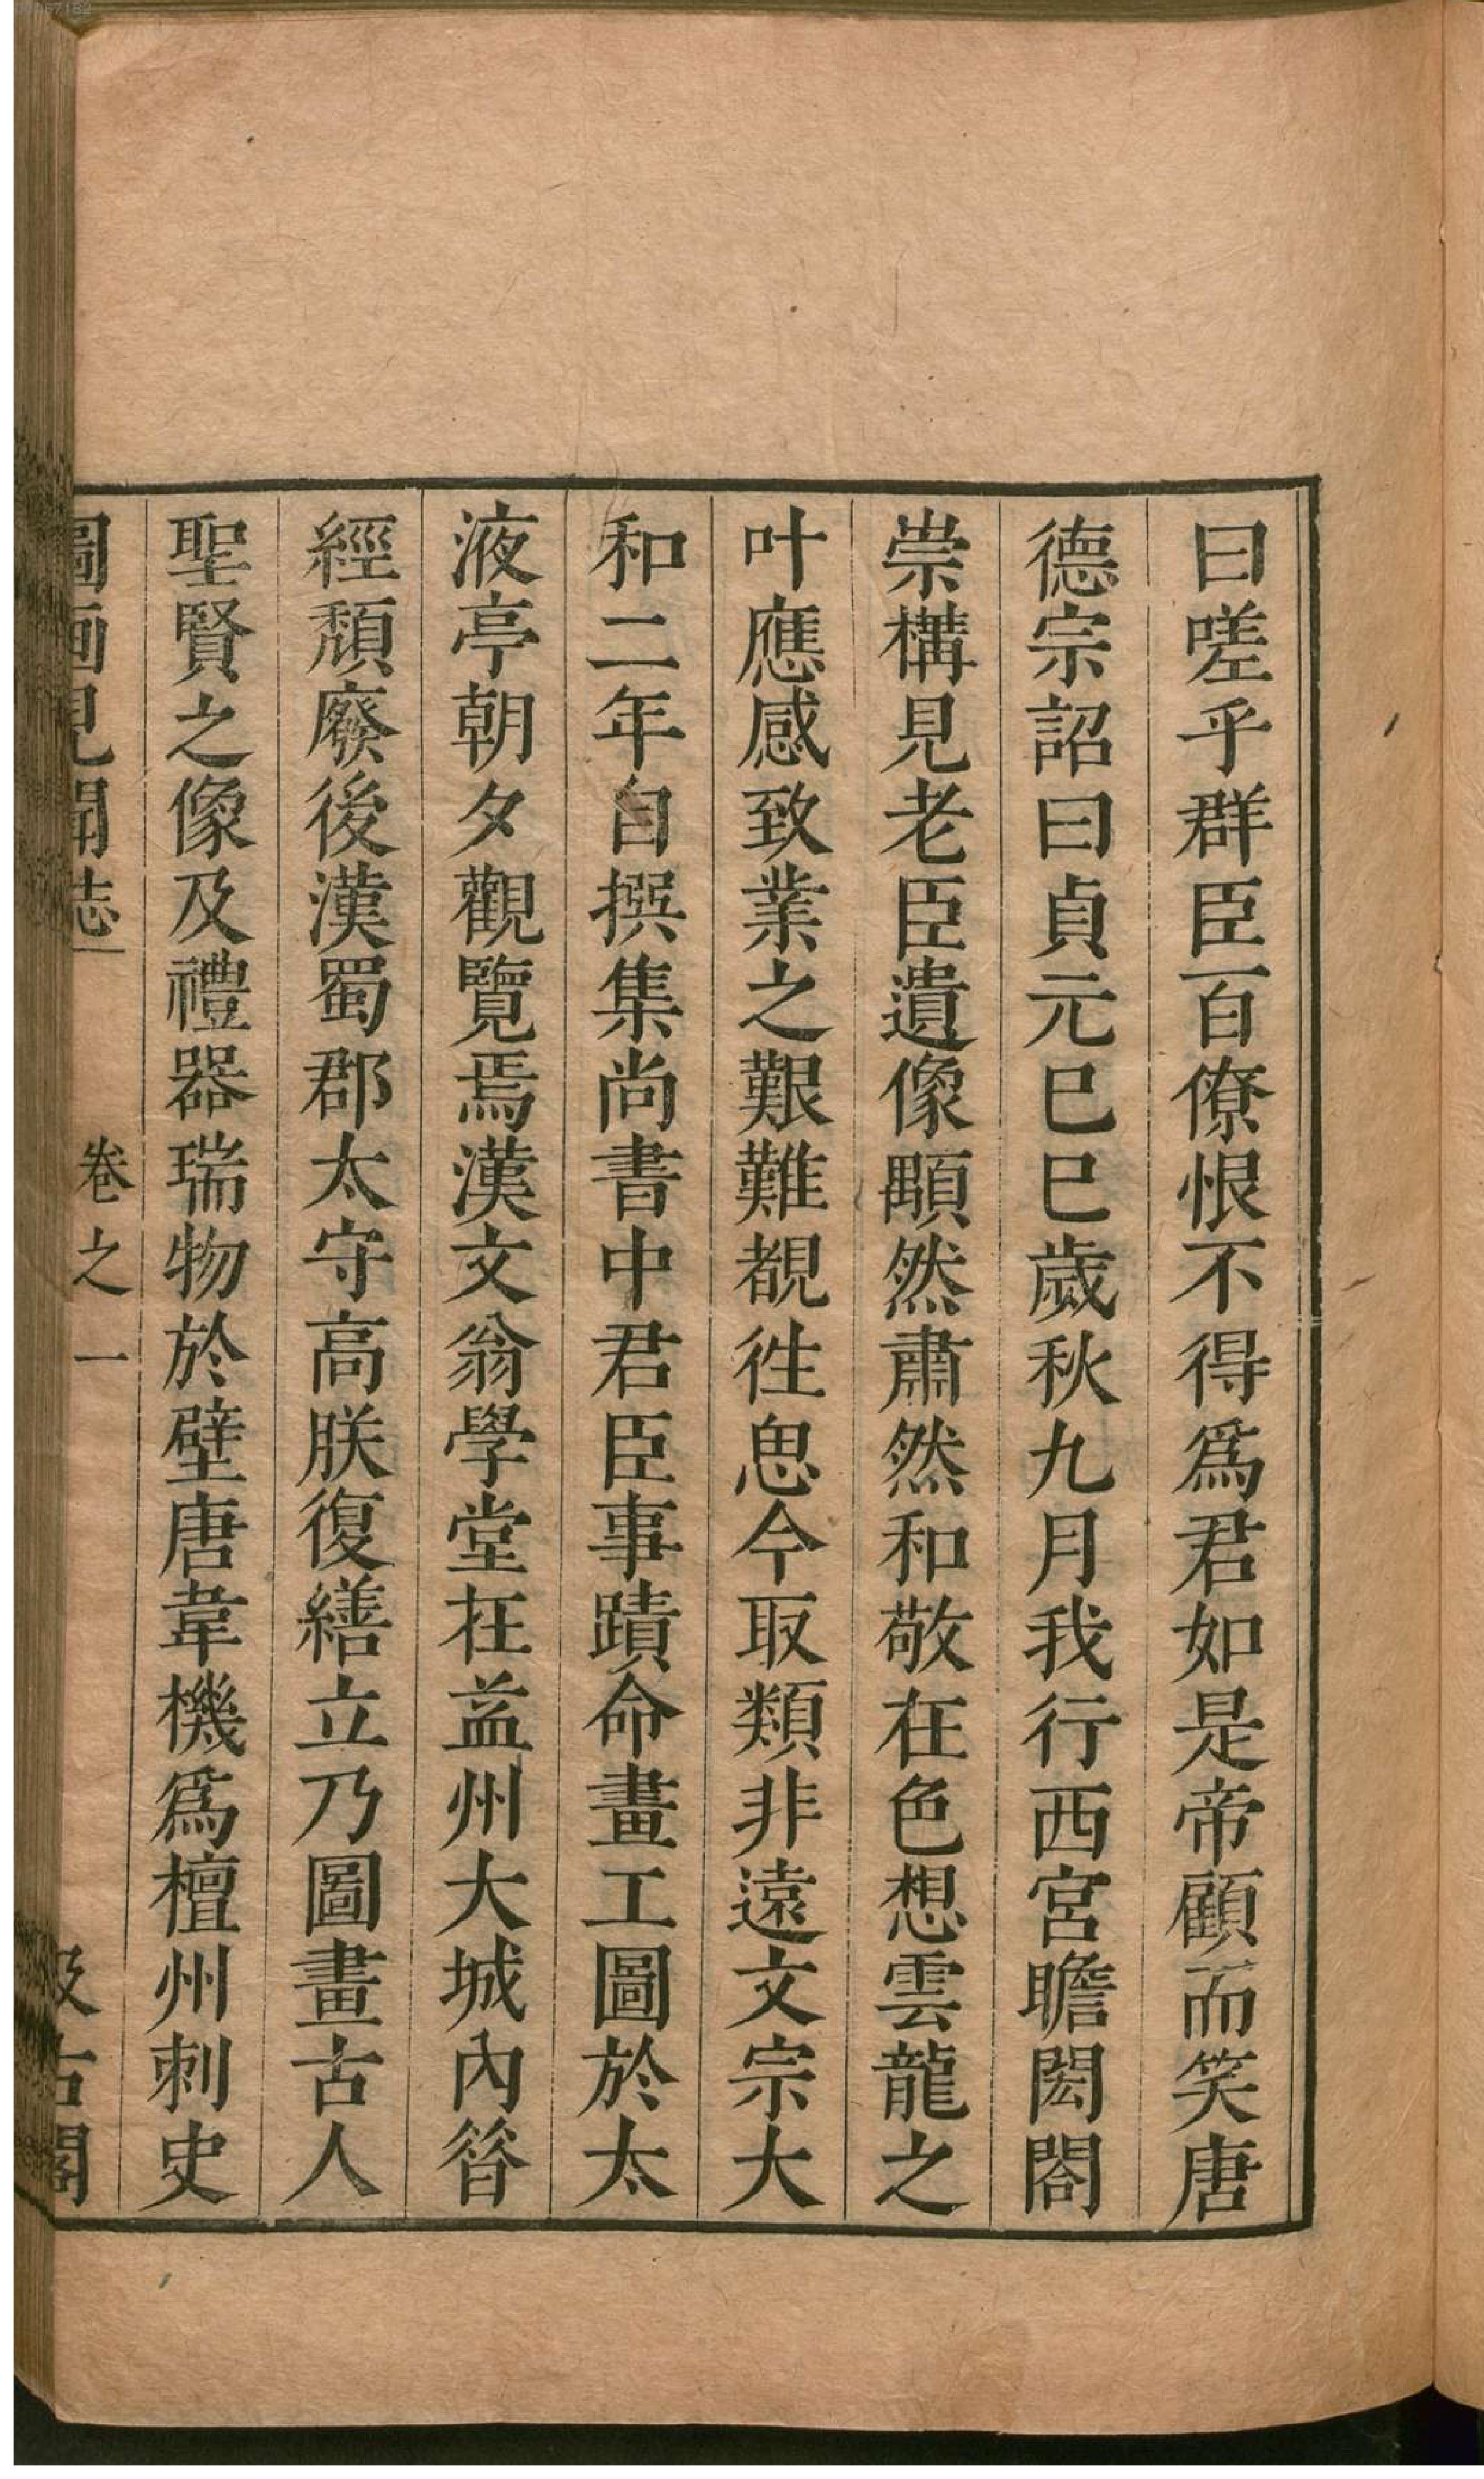 曰嗟乎群臣百僚恨不得爲君如是帝顧而笑唐
德宗詔曰貞元巳巳歲秋九月我行西宮瞻閎閣
崇構見老臣遺像顒然肅然和敬在色想雲龍之
叶應感致業之艱難覩徃思今取類非遠文宗大
和二年自撰集尚書中君臣事蹟命畫工圖於太
液亭朝夕觀覽焉漢文翁學堂在益州大城內昝
經頹廢後漢蜀郡太守高朕復繕立乃圖畫古人
聖賢之像及禮器瑞物於壁唐韋機爲檀州刺史
圖画見聞志 卷之一 汲古閣